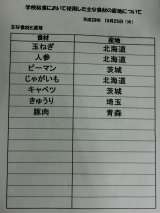 学校給食において使用した主な食材の産地について
平成28年 10月25日 (火)
主な食材の産地
食材 産地
玉ねぎ 北海道
人参 北海道
ピーマン 茨城
じゃがいも 北海道
キャベツ 茨城
きゅうり 埼玉
豚肉 青森